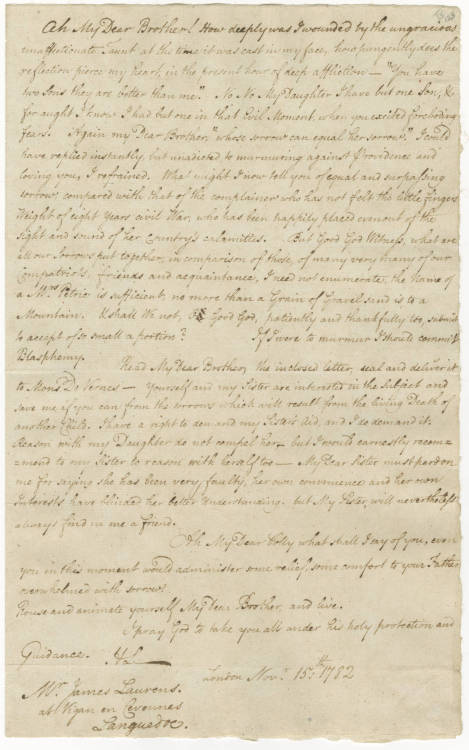 Ah My Dear Brother! How deeply was I wounded by the ungracious
unaffectionate Taunt at the time it was cast in my face, how pungently does the
reflection pierce my heart, in the present hour of deep affliction — "You have
two Sons they are better than me". No No My Daughter I have but one Son, &
for aught I know I had but one in that Evil Moment, when you excited foreboding
fears. Again my Dear Brother, "whose sorrow can equal her sorrow." I could
have replied instantly, but unadicted to murmuring against Providence and
loving you, I refrained. What might I now tell you of equal and surpassing
sorrow compared with that of the complainer who has not felt the little fingers
Weight of eight Years civil War, who has been happily placed even out of the
sight and sound of her Country's calamities. But Good God Witness, what are
all our Sorrows put together, in comparison of those, of many very many of our
Compatriots, friends and acquaintance, I need not enumerate, the Name of
a Mrs. Petrie is sufficient, no more than a Grain of Gravel sand is to a
Mountain. & shall We not, Good God, patiently and thankfully too, submit
to accept of so small a portion? If I were to murmur I should commit
Blasphemy.
Read My Dear Brother, the inclosed letter, seal and deliver it
to Monsr. D Vernes — Yourself and my Sister are interested in the Subject and
save me if you can from the sorrows which will result from the living Death of
another Child. I have a right to demand my Sister's Aid, and I do demand it.
Reason with my Daughter do not compel her — but I would earnestly recom-
=mend to my Sister to reason with herself too — My Dear Sister must pardon
me for saying she has been very faulty, her own convenience and her own
Interests have blinded her better Understanding. but My Sister, will nevertheless
always find in me a friend.
Ah My Dear Polly what shall I say of you, even
you in this moment would administer some relief, some comfort to your Father
overwhelmed with sorrow!
Rouse and animate yourself My Dear Brother, and live.
I pray God to take you all under his holy protection and
Guidance. HL
London Novr. 15th. 1782
Mr. James Laurens.
at Vigan en Cevennes
Languedoc.